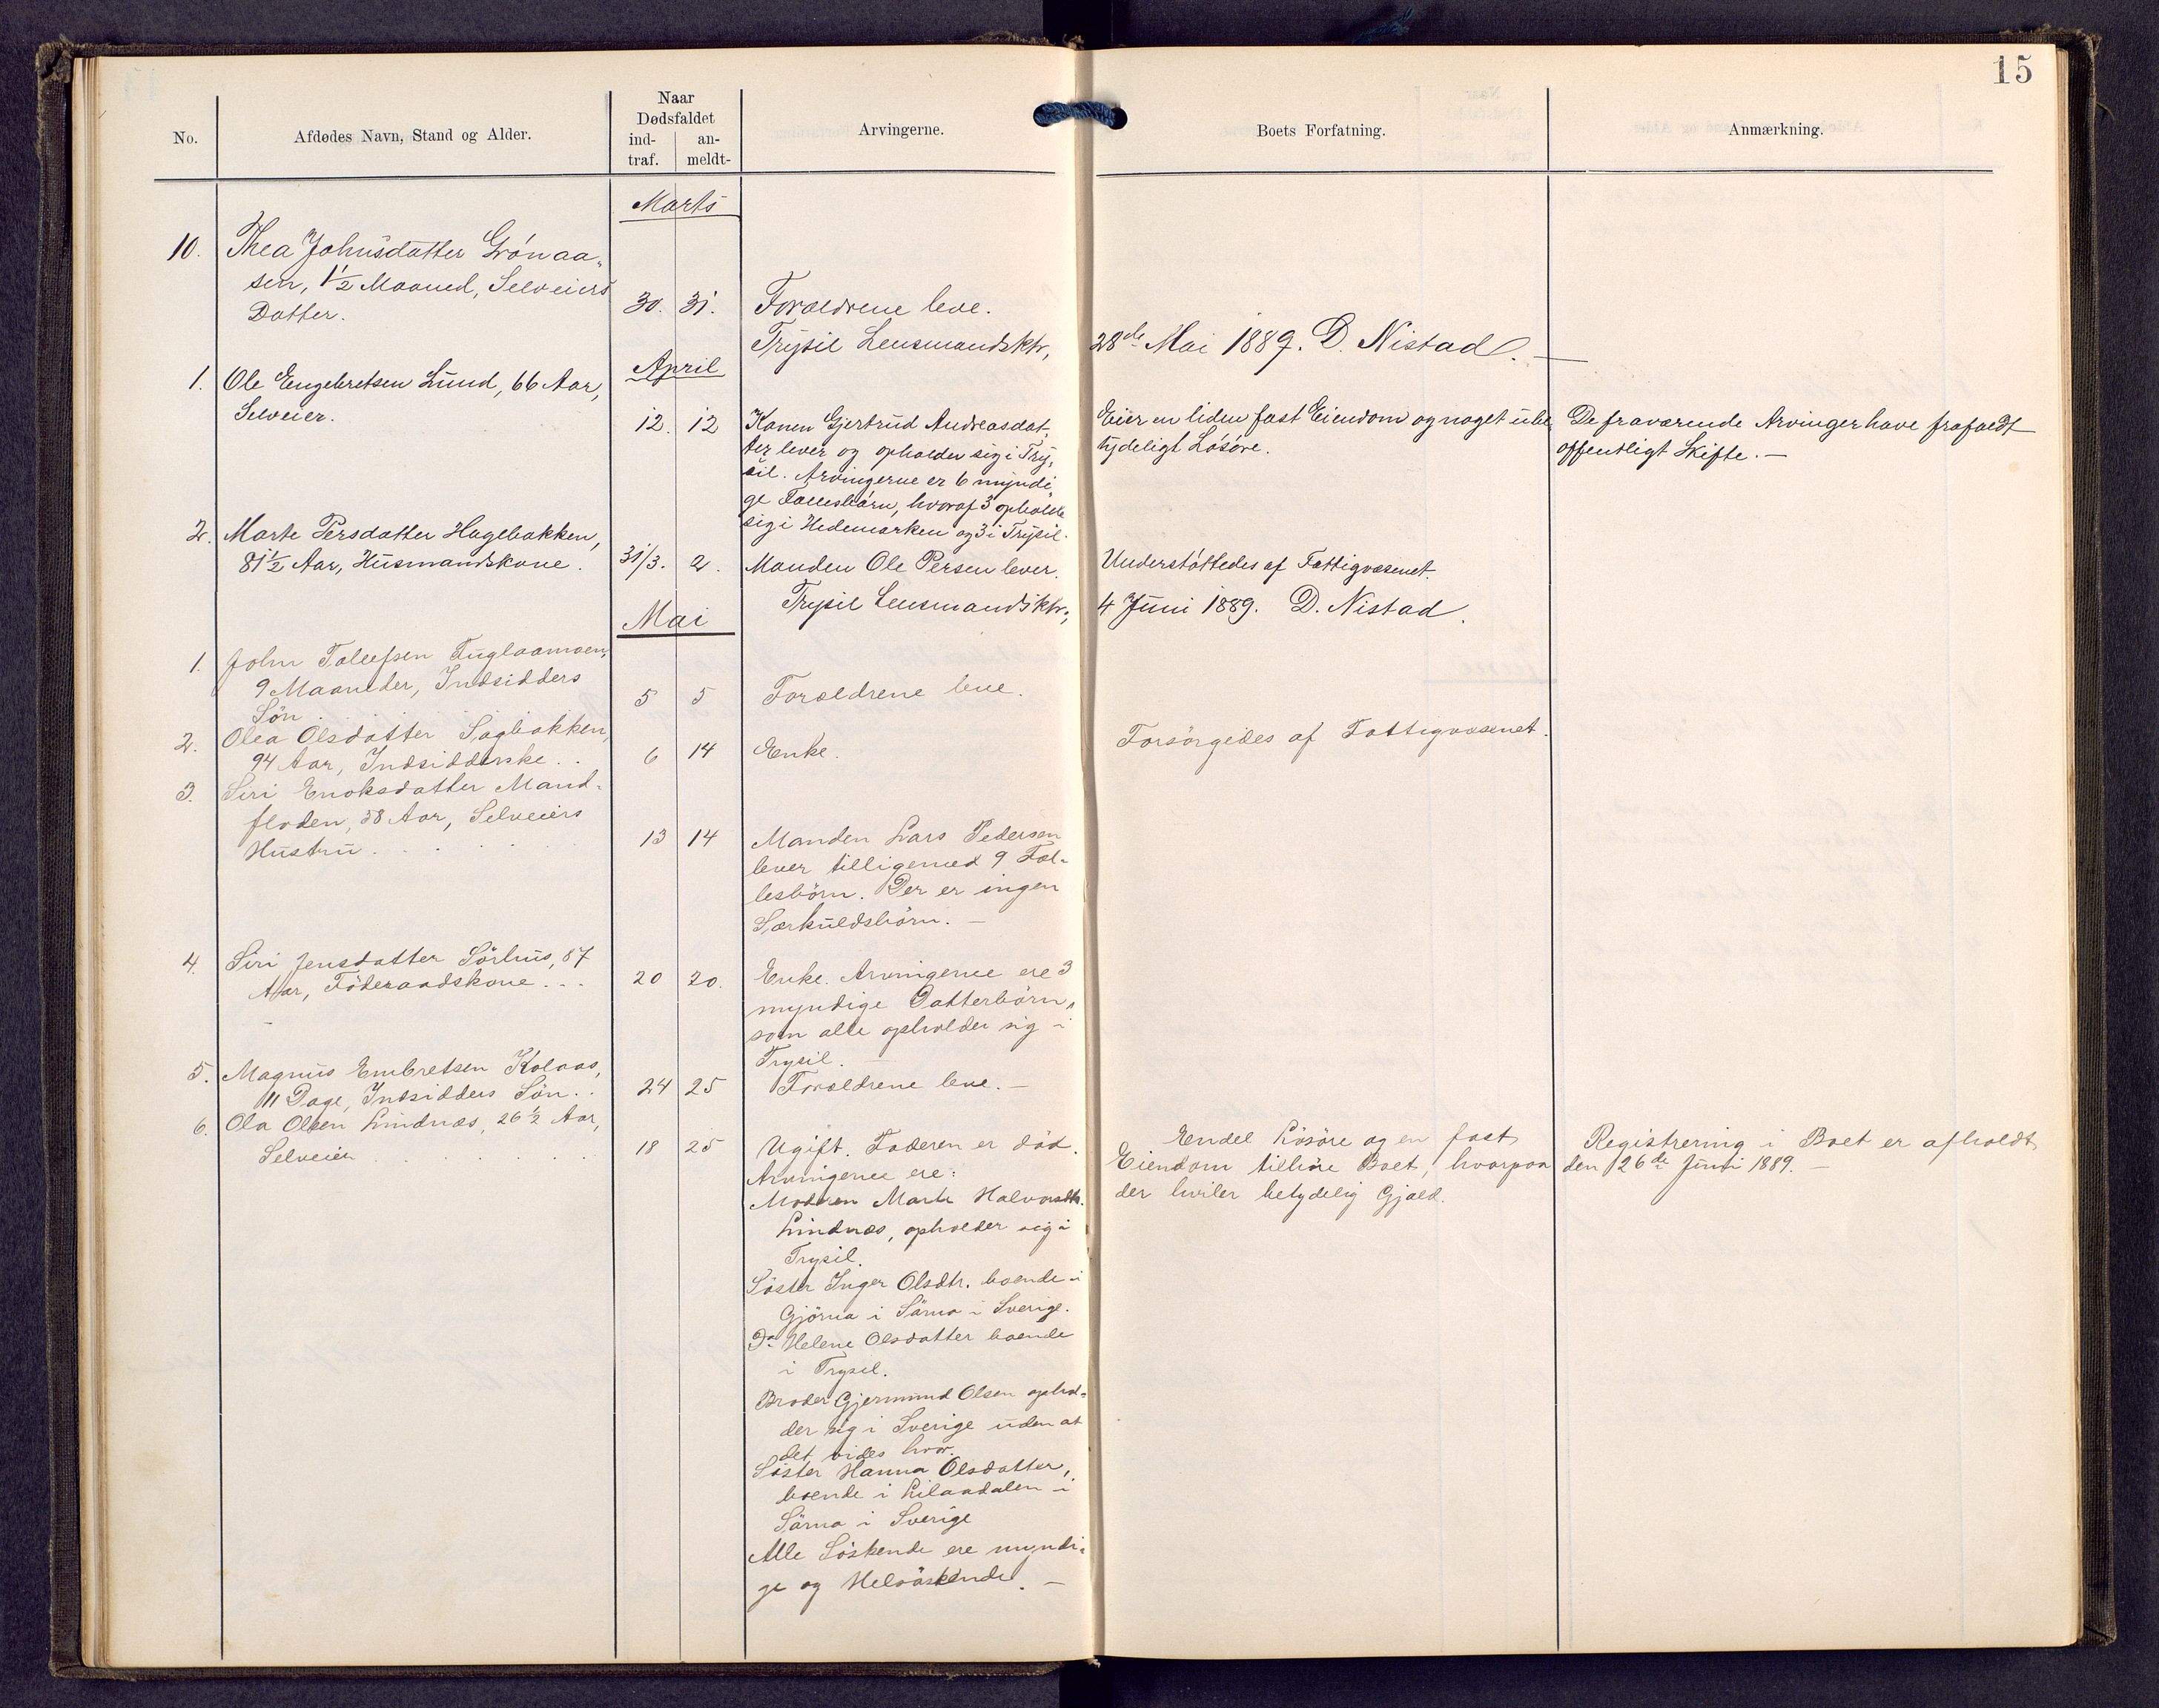 15
No.
Afdødes Navn, Stand og Alder.
Naar
Dødsfaldet
ind-
traf.
an-
meldt-
Arvingerne.
Boets Forfatning.
Anmærkning.
Marts
10. Thea Johnsdatter Grönaa„
sen, 1½ Maaned, Selveiers
Datter.
30. 31. Forældrene leve.
Trysil Lensmandsktr, 28de Mai 1889. D. Nistad. —
April
1. Ole Engebretsen Lund, 66 Aar,
Selveier.
12. 12
Konen Gjertrud Andreasdat„
ter lever og opholder sig i Try„
sil. Arvingerne er 6 myndi„
ge Fællesbörn, hvoraf 3 opholde
sig i Hedemarken og 3 i Trysil.
Eier en liden fast Eiendom og noget ube„
tydeligt Lösöre.
De fraværende Arvinger have frafaldt
offentligt Skifte. —
2. Marte Persdatter Hagebakken,
81½ Aar, Husmandskone.
31/3. 2. Manden Ole Persen lever.
Understöttedes af Fattigvæsenet.
Trysil Lensmandsktr, 4 Juni 1889. D. Nistad.
Mai
1. John Tollefsen Fuglaamoen,
9 Maaneder, Indsidders
Sön
5 5 Forældrene leve.
2. Olea Olsdatter Sagbakken,
94 Aar, Indsidderske . .
6 14 Enke.
Forsörgedes af Fattigvæsenet.
3. Siri Enoksdatter Mand-
floden, 38 Aar, Selveiers
Hustru . . . .
13 14 Manden Lars Pedersen
lever tilligemed 9 Fæl-
lesbörn. Der er ingen
Særkuldsbörn. —
4. Siri Jensdatter Sörhus, 87
Aar, Föderaadskone . . .
20 20. Enke. Arvingerne ere 3
myndige Datterbörn,
som alle opholder sig i
Trysil. —
5. Magnus Embretsen Kolaas,
11 Dage, Indsidders Sön . .
24 25 Forældrene leve. —
6. Ola Olsen Lindnæs, 26½ Aar,
Selveier . . . . . .
18 25 Ugift. Faderen er död.
Arvingerne ere:
Moderen Marte Halvorsdtr.
Lindnæs, opholder sig i
Trysil.
Söster Inger Olsdtr. boende i
Gjörna i Särna i Sverige.
Do Helene Olsdatter boende
i Trysil.
Broder Gjermund Olsen ophol-
der sig i Sverige uden at
det vides hvor.
Söster Hanna Olsdatter,
boende i Lilaadalen i
Särna i Sverige
Alle Söskende ere myndi-
ge og Helsöskende. —
Endel Lösöre og en fast
Eiendom tilhöre Boet, hvorpaa
der hviler betydelig Gjæld.
Registrering i Boet er afholdt
den 26de Juni 1889. —